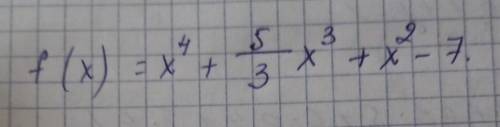 f(x) = x⁴ + 5/3 x³ + x² - 7.